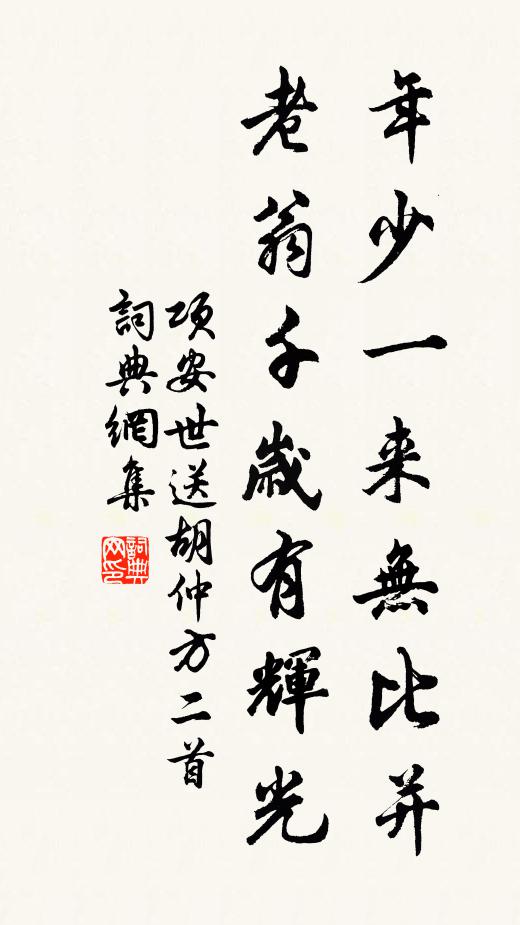 年少一来無比并
老翁千歲有輝光
項安世送胡仲方二首
詞典網集
詞典網印